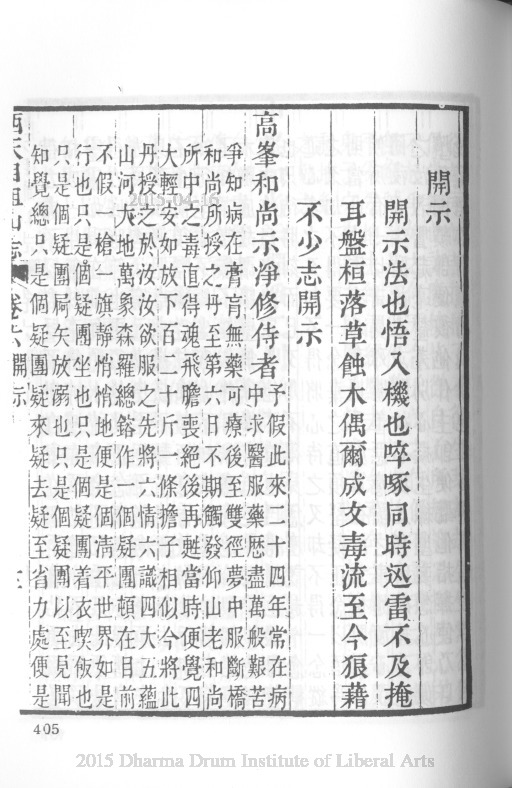 開示
開示法也悟入機也啐啄同時迅雷不及掩
耳盤桓落草蝕木偶爾成文毒流至今狼藉
不少志開示
高峯和尚示淨修侍者予假此來二十四年常在病
中求醫服藥歷盡萬般艱苦
爭知病在膏肓無藥可療後至雙徑夢中服斷橋
和尚所授之丹至第六日不期觸發仰山老和尚
所中之毒直得魂飛膽喪絕後再甦當時便覺四
大輕安如放下百二十斤一條擔子相似今將此
丹授之於汝汝欲服之先將六情六識四大五蘊
山河大地萬象森羅總鎔作一個疑團頓在目前
不假一槍一旗靜悄悄地便是個清平世界如是
行也只是個疑團坐也只是個疑團着衣喫飯也
只是個疑團屙矢放溺也只是個疑團以至見聞
知覺總只是個疑團疑來疑去疑至省力處便是
西天目祖山志 卷六 開示
2015-04-16
405
2015 Dharma Drum Institute of Liberal Arts